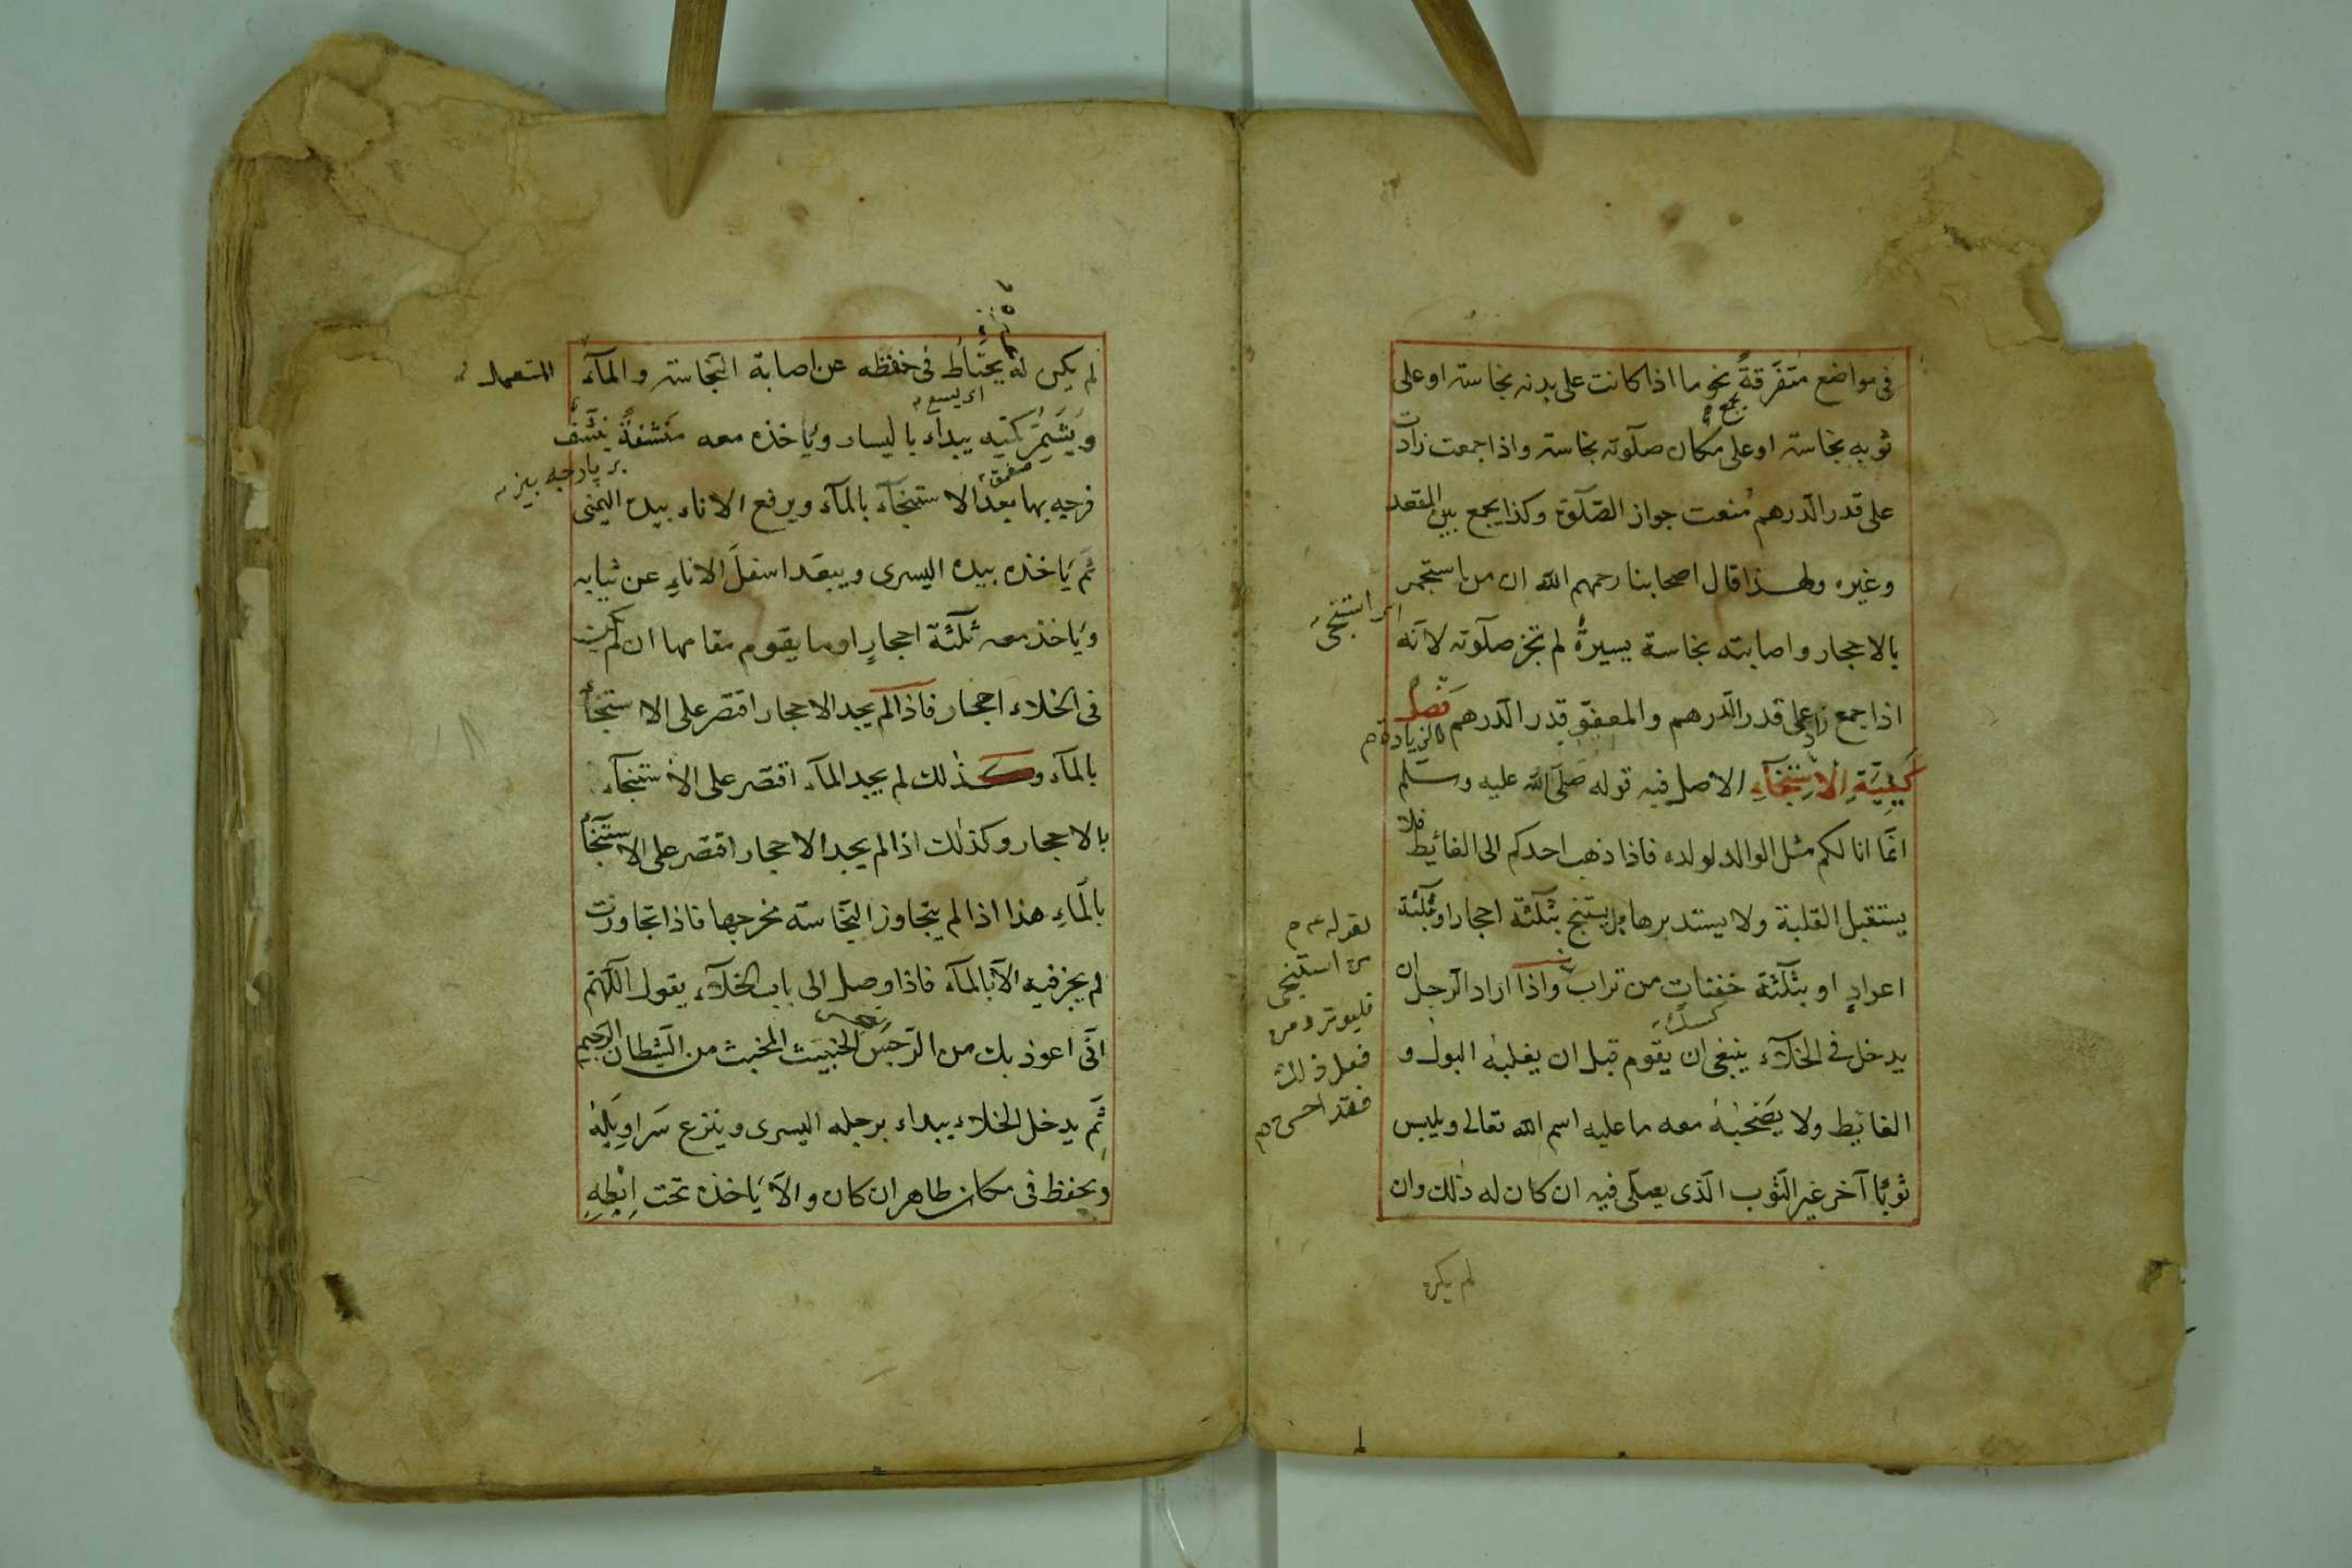 فى مواضع متفرقةً نحو ما اذا كانت على بدنه نجاسته او على
ثوبه نجاسته او على مكان صلوته نجاسته واذا جمعت زادت
على قدر الدرهم مُنعت جواز الصّلوة وكذا يجمع بين المقعد
وغيره ولهذا قال اصحابنا رحمهم الله ان من استجمر
بالاحجار واصابته نجاسة يسيرةٌ لم تجز صلوته لانّه
اذا جمع زاد على قدر الدّرهم والمعفوّ قدر الدّرهم فصل
كَيفِيَّةِ الْاِستِنجَآءِ الاصل فيه قوله صلّى الله عليه وسلّم
انّما انا لكم مثل الوالد لولده فاذا ذهب احدكم الى الغائط فلا
يستقبل القبلة ولا يستدبرها بل يستنج بثلثة احجار او ثلثة
اعوادٍ او بثلثة حفنات من تراب واذا اراد الرجل ان
يدخل فى الخلآء ينبغى ان يقوم قبل ان يغلبه البول و
الغائط ولا يصحبه معه ما عليه اسم الله تعالى ويلبس
ثوبًا آخر غير الثّوب الّذى يصلّى فيه ان كان له ذلك وان
اى استنجى
الزيادة
لقوله عم
من استنجى
فليوتر ومن
فعل ذلك
فقد احسن
لم يكن
لم يكن له يحتاط فى حفظه عن اصابة النّجاسته والمآء
المستعمل
ويُشَمِّرُ كمّيه يبدآء باليسار ويأخذه معه منشفةً ينشّف
فرجه بها بعد الاستنجآء بالمآء ويرفع الاناء بيده اليمنى
ثمّ يأخذه بيده اليسرى ويبعّد اسفلَ الاناءِ عن ثيابه
ويأخذ معه ثلثة احجارٍ او ما يقوم مقامها ان لم يكن
فى الخلاء احجار فاذا لم يجد الاحجار اقتصر على الاستنجأ
بالمآء وكذلك لم يجد المآء اقتصر على الاستنجآء
بالاحجار وكذلك اذا لم يجد الاحجار اقتصر على الاستنجأ
بالمَاءِ هذا اذا لم يتجاوز النّجاسته مخرجها فاذا تجاوزت
لم يجز فيه الّا بالمآء فاذا وصل الى باب الخلآء يقول اللّهمّ
انّى اعوذ بك من الرّجس الخبيث المخبث من الشّيطان الرّجيم
ثمّ يدخل الخلاء يبداء برجله اليسرى وينزع سَراوِيلِهُ
ويحفظ فى مكان طاهر ان كان والّا يأخذه تحت اِبْطِهِ